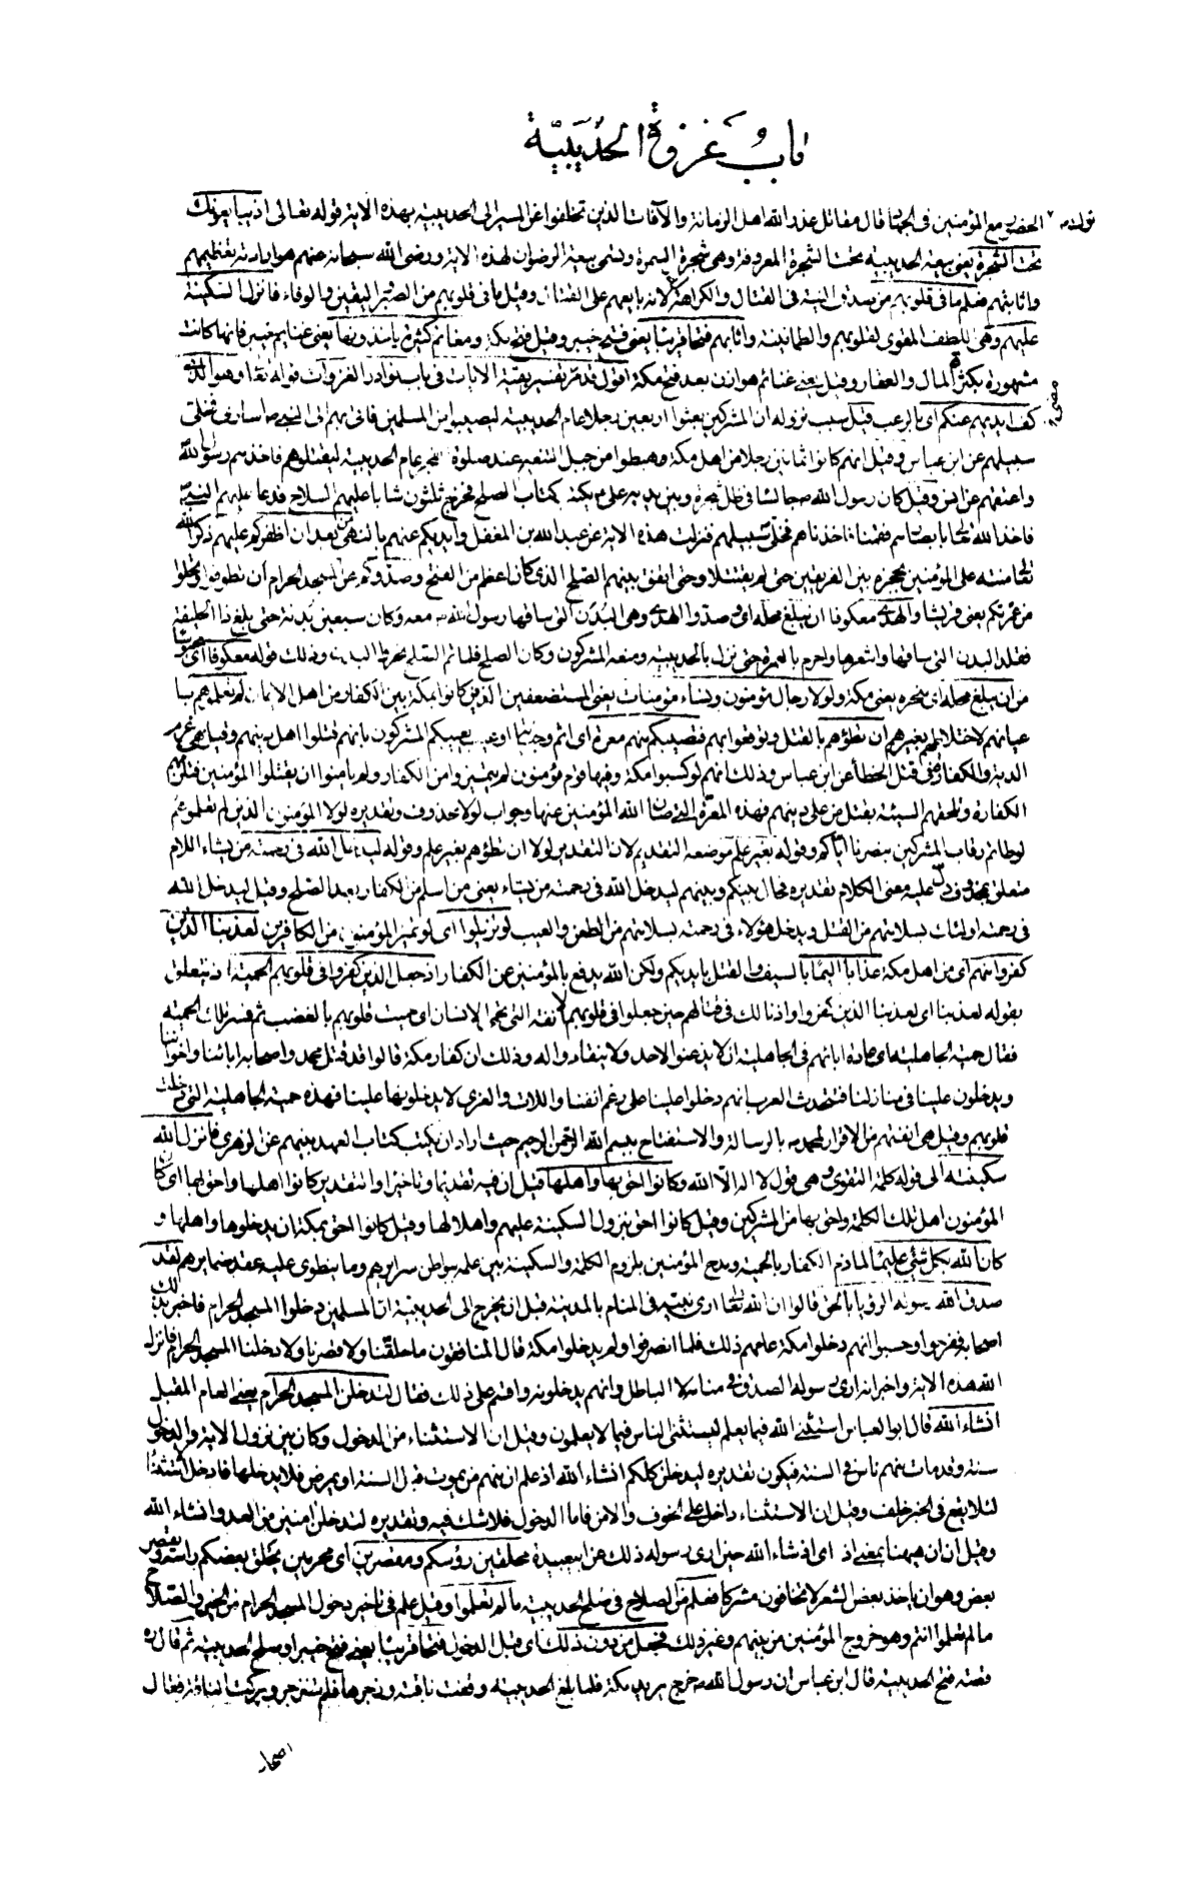 باب غزوة الحديبية
قوله تعالى الحضور مع المؤمنين فى الجهاد قال مقاتل عذر الله اهل الزمانة والآفات الذين تخلفوا عن المسير الى الحديبية بهذه الاية قوله تعالى اذ يبايعونك
تحت الشجرة يعنى بيعة الحديبية تحت الشجرة المعروفة وهى شجرة السمرة وتسمى بيعة الرضوان لهذه الاية ورضى الله سبحانه عنهم هو ارادته تعظيمهم
واثابتهم فعلم ما فى قلوبهم من صدق النية فى القتال والكراهة له لانه بايعهم على القتال وقيل ما فى قلوبهم من الصبر واليقين والوفاء فانزل السكينة
عليهم وهى اللطف المقوى لقلوبهم والطمانينة واثابهم فتحا قريبا يعنى فتح خيبر وقيل فتح مكة ومغانم كثيرة ياخذونها يعنى غنايم خيبر فانها كانت
مشهورة بكثرة المال والعقار وقيل يعنى غنائم هوازن بعد فتح مكة اقول قد مر تفسير بقية الايات فى باب نوادر الغزوات قوله تعالى وهو الذى
كف ايديهم عنكم اى بالرعب قيل سبب نزوله ان المشركين بعثوا اربعين رجلا عام الحديبية ليصيبوا من المسلمين فاتى بهم الى النبى ص اسارى فخلى
سبيلهم عن ابن عباس وقيل انهم كانوا ثمانين رجلا من اهل مكة وهبطوا من جبل التنعيم عند صلوة الفجر عام الحديبية ليقتلوهم فاخذهم رسول الله
واعتقهم عن انس وقيل كان رسول الله ص جالسا فى ظل شجرة وبين يديه على ع يكتب كتاب الصلح فخرج ثلثون شابا عليهم السلاح فدعا عليهم النبى ص
فاخذ الله تعالى بابصارهم فقمنا فاخذناهم فخلى سبيلهم فنزلت هذه الاية عن عبد الله بن المغفل وايديكم عنهم بالنهى من بعد ان اظفركم عليهم ذكر الله
تعالى منته على المؤمنين بحجزه بين الفريقين حتى لم يقتتلا وحتى اتفق بينهم الصلح الذى كان اعظم من الفتح وصدوكم عن المسجد الحرام ان تطوفوا وتحلوا
من عمرتكم يعنى قريشا والهدى معكوفا ان يبلغ محله اى وصدوا الهدى وهى البدن التى ساقها رسول الله ص معه وكان سبعين بدنة حتى بلغ ذا الحليفة
فقلد البدن التى ساقها واشعرها واحرم بالعمرة حتى نزل بالحديبية ومنعه المشركون وكان الصلح فلما تم الصلح نحروا البدن وذلك قوله معكوفا اى محبوسا
من ان يبلغ محله اى منحره يعنى مكة ولولا رجال مؤمنون ونساء مؤمنات يعنى المستضعفين الذين كانوا بمكة بين الكفار من اهل الايمان لم تعلموهم با
عيانهم لاختلاطهم بغيرهم ان تطؤهم بالقتل وتوقعوا بهم فتصيبكم منهم معرة اى اثم وجناية او عيب يعيبكم المشركون بانهم قتلوا اهل دينهم وقيل هى غرم
الدية والكفارة فى قتل الخطأ عن ابن عباس وذلك انهم لو كبسوا مكة وفيها قوم مؤمنون لم يتميزوا من الكفار ولم يامنوا ان يقتلوا المؤمنين فتلزمهم
الكفارة وتلحقهم السيئة بقتل من على دينهم فهذه المعرة التى صان الله المؤمنين عنها وجواب لولا محذوف وتقديره لولا المؤمنون الذين لم تعلموهم
لوطاتم رقاب المشركين بنصرنا اياكم وقوله بغير علم موضعه التقديم لان التقدير لولا ان تطؤهم بغير علم وقوله ليدخل الله فى رحمته من يشاء اللام
متعلق بمحذوف دل عليه معنى الكلام تقديره فحال بينكم وبينهم ليدخل الله فى رحمته من يشاء يعنى من اسلم من الكفار بعد الصلح وقيل ليدخل الله
فى رحمته اولئك بسلامتهم من القتل ويدخل هؤلاء فى رحمته بسلامتهم من الطعن والعيب لو تزيلوا اى لو تميز المؤمنون من الكافرين لعذبنا الذين
كفروا منهم اى من اهل مكة عذابا اليما بالسيف والقتل بايديكم ولكن الله يدفع بالمؤمنين عن الكفار اذ جعل الذين كفروا فى قلوبهم الحمية اذ يتعلق
بقوله لعذبنا اى لعذبنا الذين كفروا واذنا لك فى قتالهم حين جعلوا فى قلوبهم الانفة التى تحمى الانسان اى حميت قلوبهم بالغضب ثم فسر تلك الحمية
فقال حمية الجاهلية اى عادة ابائهم فى الجاهلية ان لا يذعنوا لاحد ولا ينقادوا له وذلك ان كفار مكة قالوا قد قتل محمد واصحابه ابائنا واخواننا
ويدخلون علينا فى منازلنا فتتحدث العرب انهم دخلوا علينا على رغم انفنا واللات والعزى لا يدخلونها علينا فهذه حمية الجاهلية التى دخلت
قلوبهم وقيل هى انفتهم من الاقرار لمحمد ص بالرسالة والاستفتاح ببسم الله الرحمن الرحيم حيث اراد ان يكتب كتاب العهد بينهم عن الزهرى فانزل الله
سكينته الى قوله كلمة التقوى وهى قول لا اله الا الله وكانوا احق بها واهلها قيل ان فيه تقديما وتاخيرا والتقدير كانوا اهلها واحق بها اى كان
المؤمنون اهل تلك الكلمة واحق بها من المشركين وقيل كانوا احق بنزول السكينة عليهم واهلا لها وقيل كانوا احق بمكة ان يدخلوها واهلها و
كان الله بكل شئ عليما لما ذم الكفار بالحمية ومدح المؤمنين بلزوم الكلمة والسكينة بين علمه ببواطن سرايرهم وما ينطوى عليه عقد ضمايرهم لقد
صدق الله رسوله الرؤيا بالحق قالوا ان الله تعالى ارى نبيه فى المنام بالمدينة قبل ان يخرج الى الحديبية ان المسلمين دخلوا المسجد الحرام فاخبر بذلك
اصحابه ففرحوا وحسبوا انهم دخلوا مكة عامهم ذلك فلما انصرفوا ولم يدخلوا مكة قال المنافقون ما حلقنا ولا قصرنا ولا دخلنا المسجد الحرام فانزل
الله هذه الاية واخبر انه ارى رسوله الصدق فى منامه لا الباطل وانهم يدخلونه واقسم على ذلك فقال لتدخلن المسجد الحرام يعنى العام المقبل
انشاء الله قال ابو العباس استثنى الله فيما يعلم ليستثنى الناس فيما لا يعلمون وقيل ان الاستثناء من الدخول وكان بين نزول الاية والدخول
سنة وقد مات منهم ناس فى السنة فيكون تقديره ليدخلن كلكم انشاء الله اذ علم ان منهم من يموت قبل السنة او يمرض فلا يدخلها فادخل الاستثناء
لئلا يقع فى الخبر خلف وقيل ان الاستثناء داخل على الخوف والامن فاما الدخول فلا شك فيه وتقديره لتدخلن امنين من العدو انشاء الله
وقيل ان ان هيهنا بمعنى اذ اى اذ شاء الله حين ارى رسوله ذلك عن ابى عبيدة محلقين رؤسكم ومقصرين اى محرمين يحلق بعضكم راسه ويقصر
بعض وهو ان ياخذ بعض الشعر لا تخافون مشركا فعلم من الصلاح فى صلح الحديبية ما لم تعلموا وقيل علم فى تاخير دخول المسجد الحرام من الخير والصلاح
ما لم تعلموا انتم وهو خروج المؤمنين من بينهم وغير ذلك فجعل من دون ذلك اى قبل الدخول فتحا قريبا يعنى فتح خيبر او صلح الحديبية ثم قال ره
قصة فتح الحديبية قال ابن عباس ان رسول الله ص خرج يريد مكة فلما بلغ الحديبية وقفت ناقته وزجرها فلم تنزجر وبركت الناقة فقال
اصحابه